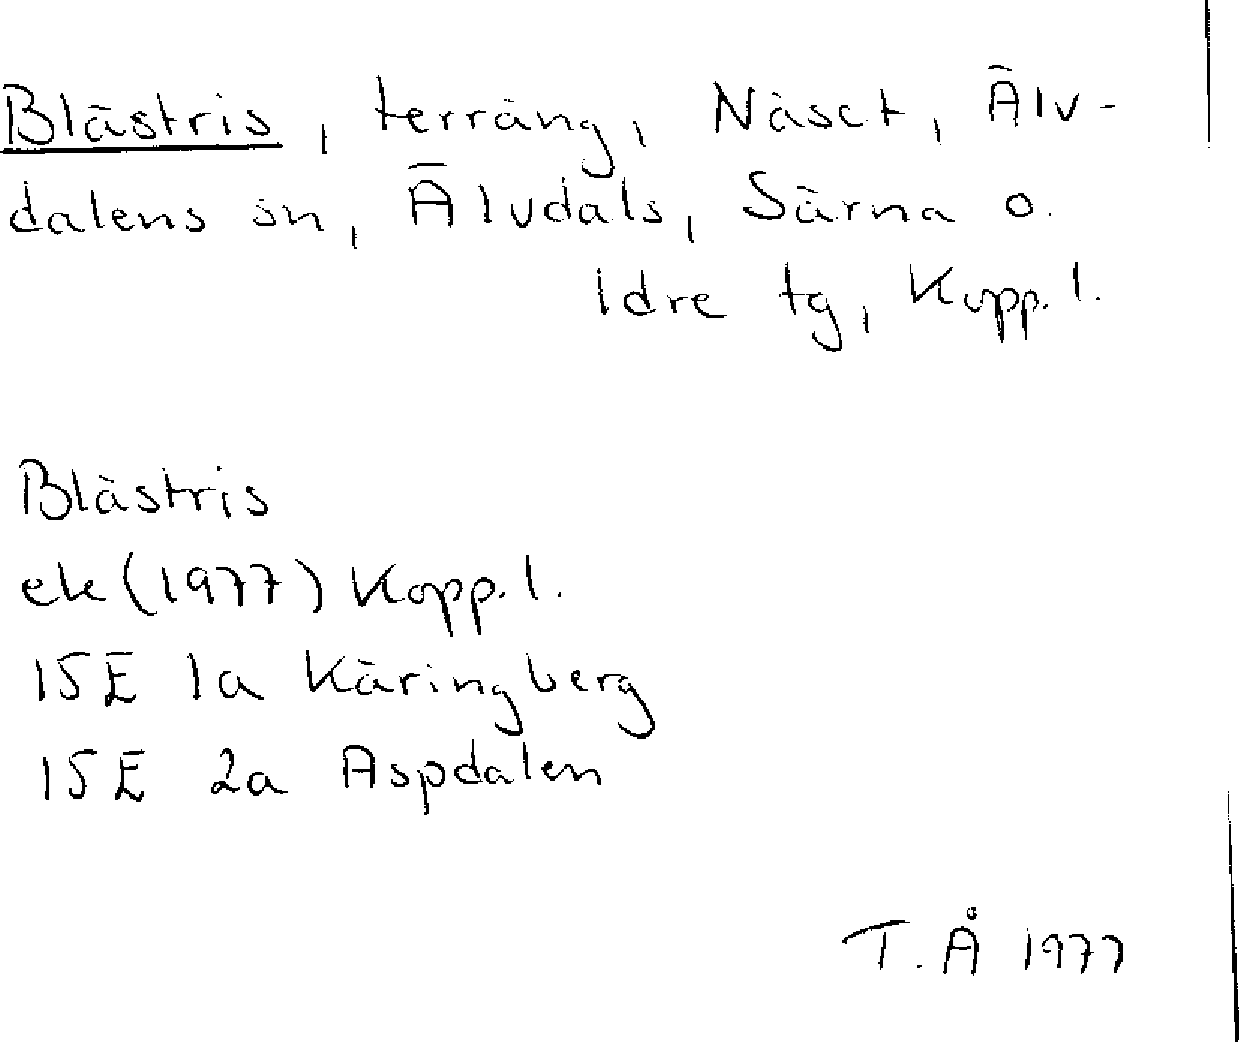 Blästris, terräng, Näset, Älv-
dalens sn, Älvdals, Särna o.
Idre tg, Kopp. l.
Blästris
ek (1977) Kopp. l.
15E 1a Käringberg
15E 2a Aspdalen
T. Å 1977